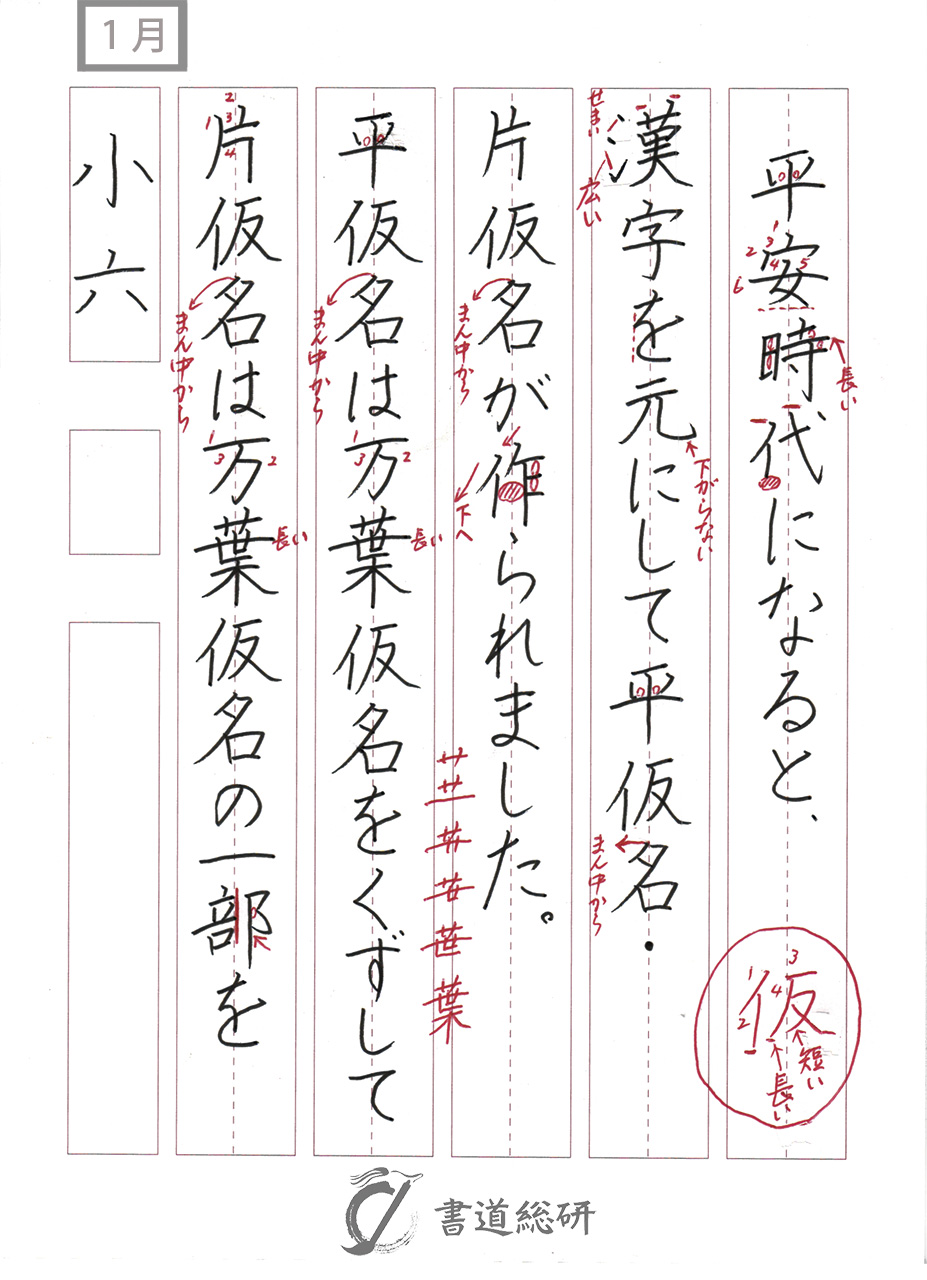 1月
平安時代になると、
漢字を元にして平仮名・
片仮名が作られました。
平仮名は万葉仮名をくずして
片仮名は万葉仮名の一部を
小六
せまい
広い
長い
下がらない
まん中から
まん中から
下へ
まん中から
長い
まん中から
長い
1
2
3
4
5
6
1
3
2
1
3
2
1
2
3
4
葉
仮
1
2
3
4
短い
長い
書道総研